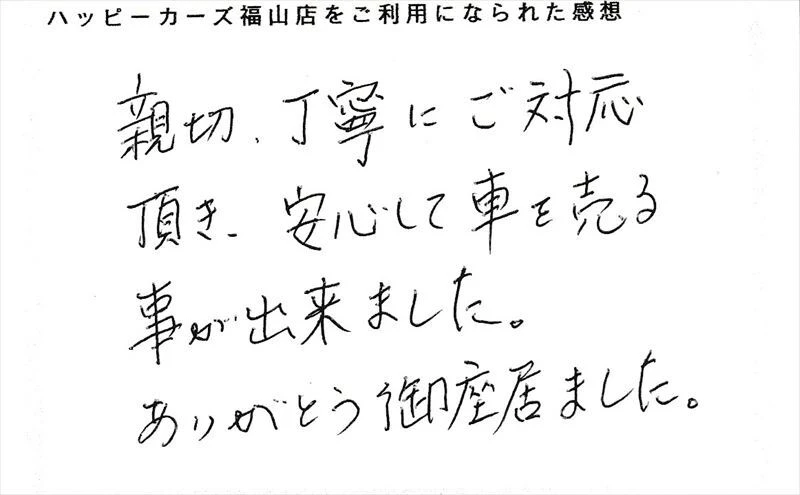 ハッピーカーズ福山店をご利用になられた感想
親切、丁寧にご対応
頂き、安心して車を売る
事が出来ました。
ありがとう御座居ました。